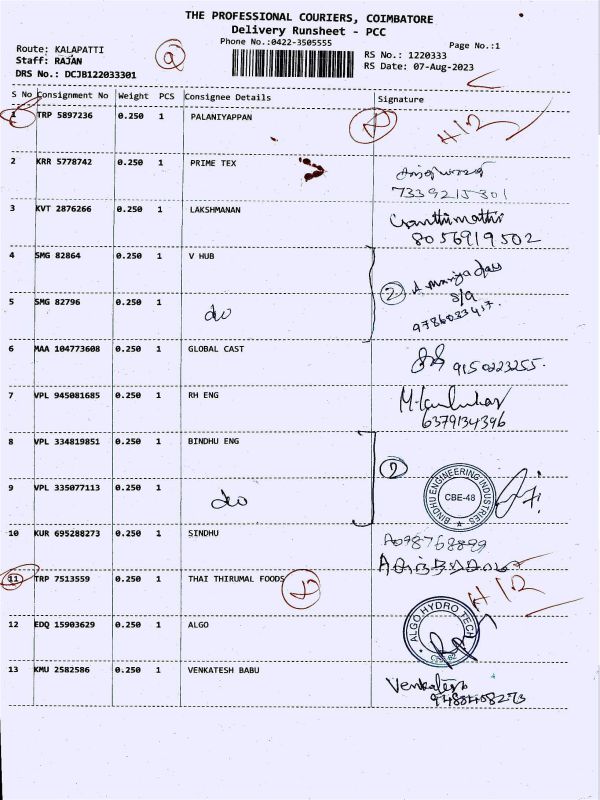 THE PROFESSIONAL COURIERS, COIMBATORE
Delivery Runsheet - PCC
Phone No.:0422-3505555
Page No.:1
Route: KALAPATTI
Staff: RAJAN
DRS No.: DCJB122033301
RS No.: 1220333
RS Date: 07-Aug-2023
S No Consignment No Weight PCS Consignee Details Signature
1 TRP 5897236 0.250 1 PALANIYAPPAN
2 KRR 5778742 0.250 1 PRIME TEX
7339215301
3 KVT 2876266 0.250 1 LAKSHMANAN
8056919502
4 SMG 82864 0.250 1 V HUB
2
5 SMG 82796 0.250 1 do
6 MAA 104773608 0.250 1 GLOBAL CAST 9150223255.
7 VPL 945081685 0.250 1 RH ENG
6379134396
8 VPL 334819851 0.250 1 BINDHU ENG
2 BINDHU ENGINEERING INDUSTRIES CBE-48
9 VPL 335077113 0.250 1 do
10 KUR 695288273 0.250 1 SINDHU
11 TRP 7513559 0.250 1 THAI THIRUMAL FOODS
12 EDQ 15903629 0.250 1 ALGO ALGO HYDRO TECH
13 KMU 2582586 0.250 1 VENKATESH BABU Venkatesh